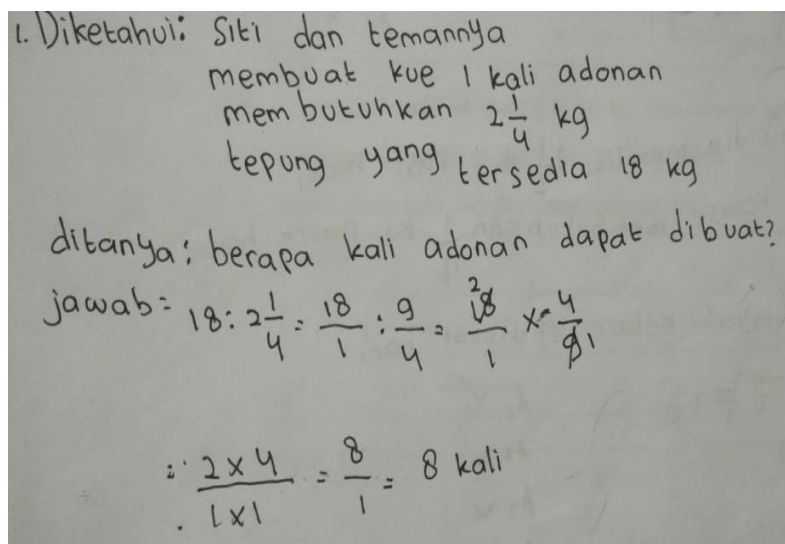 1. Diketahui: Siti dan temannya
membuat kue 1 kali adonan
membutuhkan 2 1/4 kg
tepung yang tersedia 18 kg
ditanya: berapa kali adonan dapat dibuat?
jawab = 18 : 2 1/4 = 18/1 : 9/4 = 18/1 2 × 4/9 1
= 2 × 4 / 1 × 1 = 8/1 = 8 kali